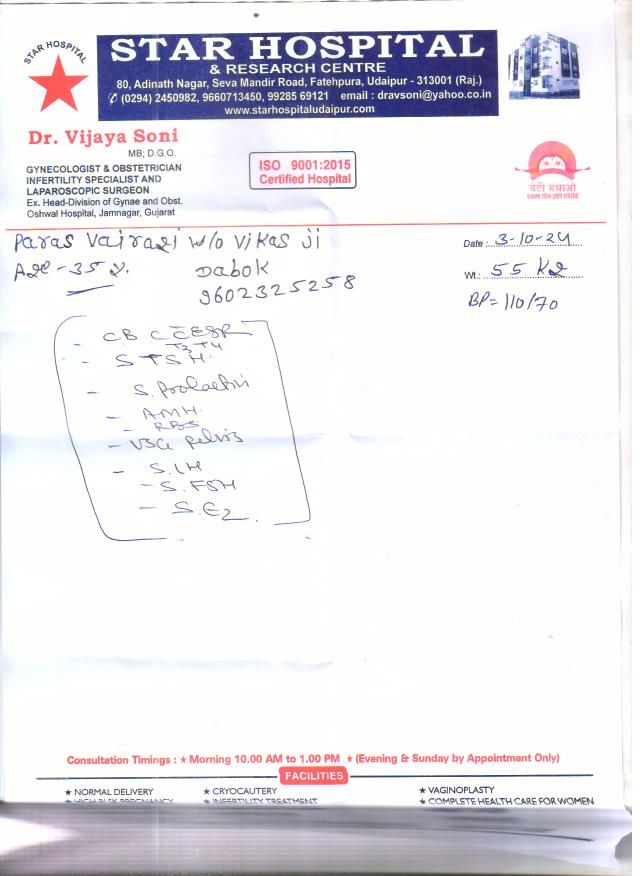 STAR HOSPITAL
STAR HOSPITAL
& RESEARCH CENTRE
80, Adinath Nagar, Seva Mandir Road, Fatehpura, Udaipur - 313001 (Raj.)
✆ (0294) 2450982, 9660713450, 99285 69121 email : dravsoni@yahoo.co.in
www.starhospitaludaipur.com
Dr. Vijaya Soni
MB; D.G.O.
GYNECOLOGIST & OBSTETRICIAN
INFERTILITY SPECIALIST AND
LAPAROSCOPIC SURGEON
Ex. Head-Division of Gynae and Obst.
Oshwal Hospital, Jamnagar, Gujarat
ISO 9001:2015
Certified Hospital
बेटी बचाओ
Paras Vairagi w/o Vikas Ji
Date : 3-10-24
Age - 35 y.
Dabok
Wt.: 55 Kg
9602325258
BP = 110/70
- CBC C̄ ESR
T3 T4
- S TSH
- S. Prolactin
- AMH.
- RBS
- USG Pelvis
- S. LH
- S. FSH
- S. E2
Consultation Timings : ★ Morning 10.00 AM to 1.00 PM ★ (Evening & Sunday by Appointment Only)
FACILITIES
★ NORMAL DELIVERY ★ CRYOCAUTERY ★ VAGINOPLASTY
★ HIGH RISK PREGNANCY ★ INFERTILITY TREATMENT ★ COMPLETE HEALTH CARE FOR WOMEN